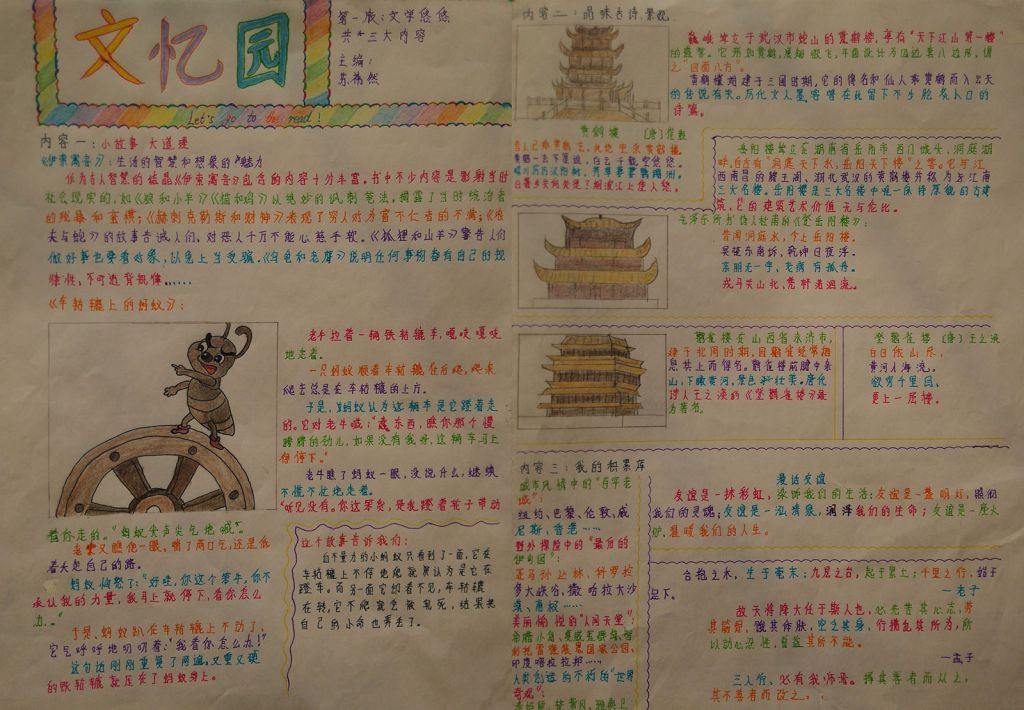 文忆园
第一版:文学悠悠
共十三大内容
主编:
Let's go to the read!
内容一:小故事 大道理
《伊索寓言》:生活的智慧和想象的魅力
作为古人智慧的结晶《伊索寓言》包含的内容十分丰富。书中不少内容是影射当时
社会现实的,如《狼和小羊》《猫和鸡》以绝妙的讽刺笔法,揭露了当时统治者
的残暴和蛮横;《赫剌克勒斯和财神》表现了穷人对为富不仁者的不满;《农
夫与蛇》的故事告诫人们,对恶人千万不能心慈手软。《狐狸和山羊》警告人们
做好事也要看对象,以免上当受骗。《乌龟和老鹰》说明任何事物都有自己的规
律性,不可违背规律……
《车轱辘上的蚂蚁》:
老牛拉着一辆铁轱辘车,嘎吱嘎吱
地走着。
一只蚂蚁顺着车轱辘往后爬,爬来
爬去总是在车轱辘的上方。
于是,蚂蚁认为这辆车是它蹬着走
的。它对老牛喊:“蠢东西,瞧你那个慢
腾腾的劲儿,如果没有我呀,这辆车马上
得停下。”
老牛瞧了蚂蚁一眼,没说什么,继续
不慌不忙地走着。
“听见没有。你这笨货,是我蹬着轮子带动
着你走的。”蚂蚁尖声尖气地喊。
老牛又瞧他一眼,喘了两口气,还是低
着头走自己的路。
蚂蚁愤怒了:“好哇,你这个笨牛,你不
承认我的力量,我马上就停下,看你怎么
办。”
于是,蚂蚁趴在车轱辘上不动了,
它气呼呼地叨叨着:“我看你怎么办!”
这句话刚刚重复了两遍,又重又硬
的铁轱辘就压在了蚂蚁身上。
这个故事告诉我们:
自不量力的小蚂蚁只看到了一面,它在
车轱辘上不停地爬就认为是它在
蹬车。而另一面它却看不见,车轱辘
在转,它不爬就会被轧死,结果把
自己的小命也弄丢了。
内容二:品味古诗 景观
巍峨耸立于武汉市蛇山的黄鹤楼,享有“天下江山第一楼”
的盛誉。它形如黄鹤,展翅欲飞,平面设计为四边套八边形,谓
之“四面八方”。
黄鹤楼始建于三国时期,它的得名和仙人乘黄鹤而入云天
的传说有关。历代文人墨客曾在此留下不少脍炙人口的
诗篇。
黄鹤楼 (唐)崔颢
昔人已乘黄鹤去,此地空余黄鹤楼。
黄鹤一去不复返,白云千载空悠悠。
晴川历历汉阳树,芳草萋萋鹦鹉洲。
日暮乡关何处是?烟波江上使人愁。
岳阳楼耸立在湖南省岳阳市西门城头,洞庭湖
畔,自古有“洞庭天下水,岳阳天下楼”之誉。它与江
西南昌的滕王阁、湖北武汉的黄鹤楼并称为江南
三大名楼。岳阳楼是三大名楼中唯一保持原貌的古建
筑,它的建筑艺术价值无与伦比。
毛泽东所书诗人杜甫的《登岳阳楼》:
昔闻洞庭水,今上岳阳楼。
吴楚东南坼,乾坤日夜浮。
亲朋无一字,老病有孤舟。
戎马关山北,凭轩涕泗流。
鹳雀楼在山西省永济市,
建于北周时期,因鹳雀经常栖
息其上而得名。鹳雀楼前瞻中条
山,下瞰黄河,景色壮美。唐代
诗人王之涣的《登鹳雀楼》最
为著名。
登鹳雀楼 (唐)王之涣
白日依山尽,
黄河入海流。
欲穷千里目,
更上一层楼。
内容三:我的积累库
城市风情中的“百年老
城”:
纽约、巴黎、伦敦、威
尼斯、香港……
野外探险中的“最后的
伊甸园”:
亚马孙丛林、科罗拉
多大峡谷、撒哈拉大沙
漠、
美丽愉悦的“人间天堂”:
国家公园、
印度喀拉拉邦……
人类创造的不朽的“世界
奇观”:
漫话友谊
友谊是一抹彩虹,涂饰我们的生活;友谊是一盏明灯,照彻
我们的灵魂;友谊是一泓清泉,润泽我们的生命;友谊是一座火
炉,温暖我们的人生。
合抱之木,生于毫末;九层之台,起于累土;千里之行,始于
足下。
—老子
故天将降大任于斯人也,必先苦其心志,劳
其筋骨,饿其体肤,空乏其身,行拂乱其所为,所
以动心忍性,曾益其所不能。
—孟子
三人行,必有我师焉。择其善者而从之,
其不善者而改之。